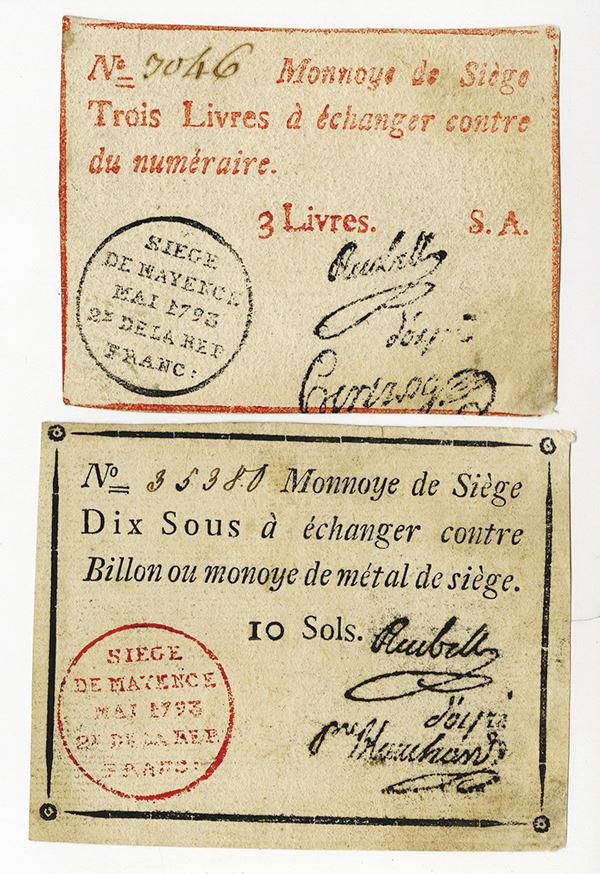 Nº 7046 Monnoye de Siège
Trois Livres à échanger contre
du numéraire.
3 Livres. S. A.
SIEGE
DE MAYENCE
MAI 1793
2E DE LA REP
FRANC:
Reubell
d'oyré
Nº 35380 Monnoye de Siège
Dix Sous à échanger contre
Billon ou monoye de métal de siège.
10 Sols.
SIEGE
DE MAYENCE
MAI 1793
2E DE LA REP
FRANC:
Reubell
d'oyré